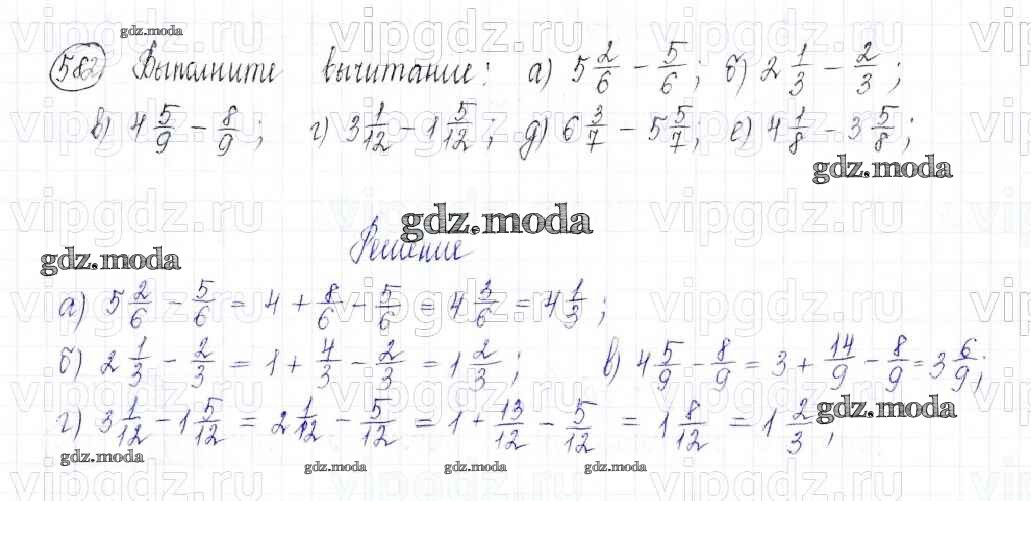 gdz.moda
582 Выполните вычитание: а) 5 2/6 − 5/6; б) 2 1/3 − 2/3;
в) 4 5/9 − 8/9; г) 3 1/12 − 1 5/12; д) 6 3/7 − 5 5/7; е) 4 1/8 − 3 5/8;
gdz.moda
gdz.moda
Решение
gdz.moda
а) 5 2/6 − 5/6 = 4 + 8/6 − 5/6 = 4 3/6 = 4 1/3;
б) 2 1/3 − 2/3 = 1 + 4/3 − 2/3 = 1 2/3; в) 4 5/9 − 8/9 = 3 + 14/9 − 8/9 = 3 6/9;
г) 3 1/12 − 1 5/12 = 2 1/12 − 5/12 = 1 + 13/12 − 5/12 = 1 8/12 = 1 2/3;
gdz.moda
gdz.moda gdz.moda gdz.moda gdz.moda
vipgdz.ru vipgdz.ru vipgdz.ru vipgdz.ru